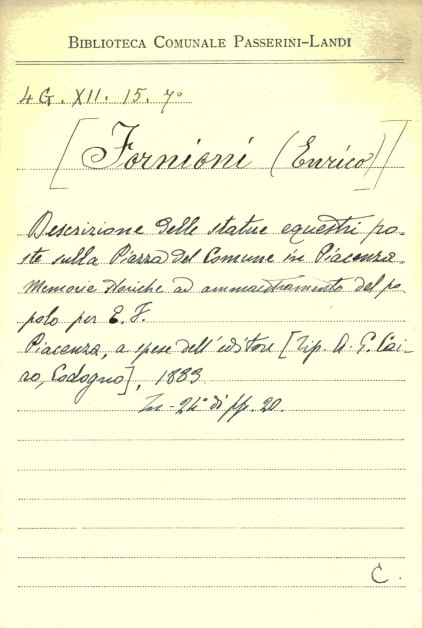 BIBLIOTECA COMUNALE PASSERINI-LANDI
4 G. XII. 15. 7°
[Fornioni (Enrico)]
Descrizione delle statue equestri po-
ste sulla Piazza del Comune in Piacenza.
Memorie storiche ad ammaestramento del po-
polo per E. F.
Piacenza, a spese dell'editore [Tip. A. G. Cai-
ro, Codogno], 1883
In-24° di pp. 20.
C.